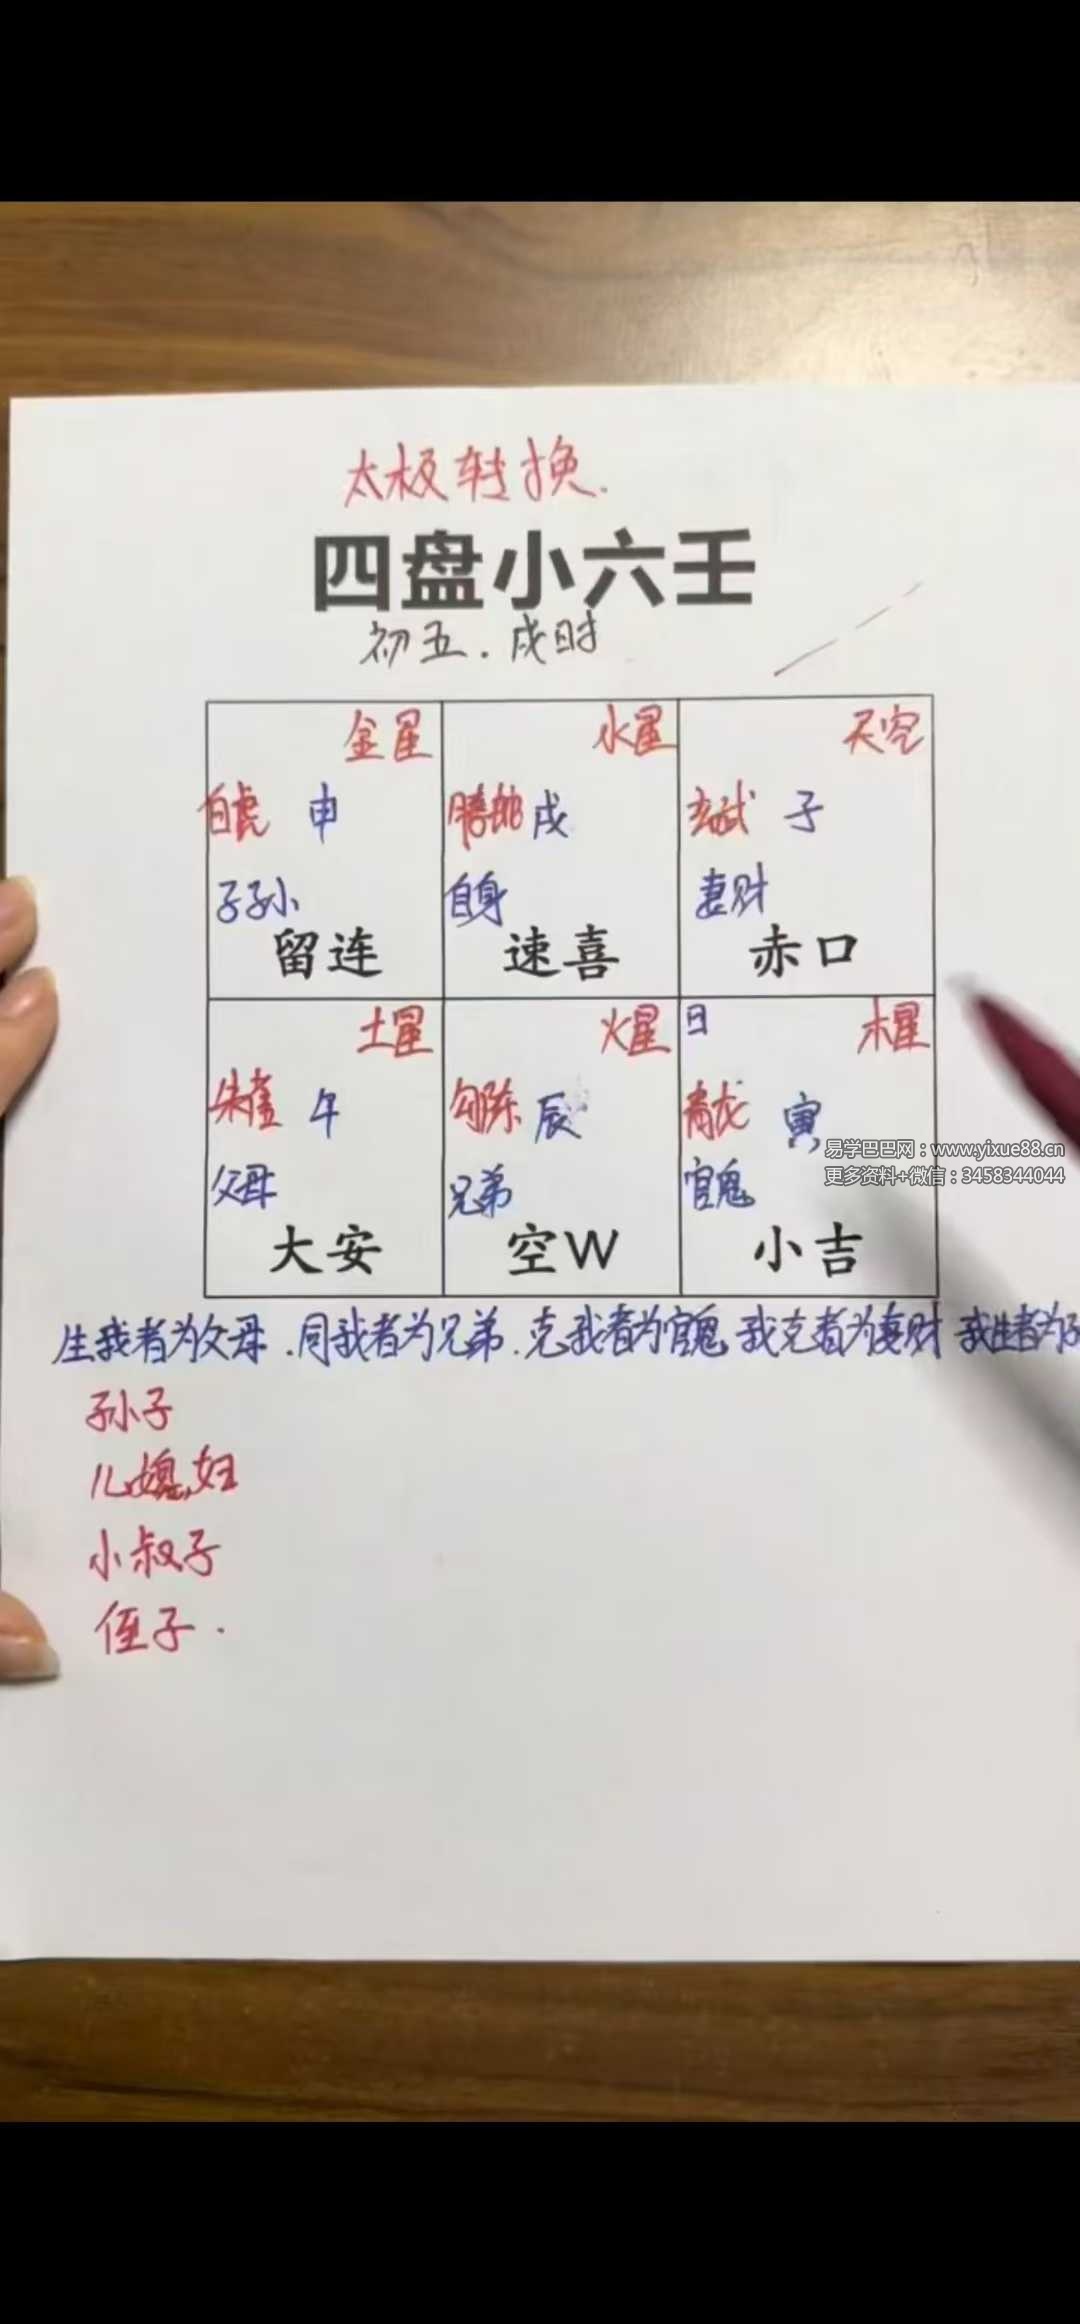 太极转换.
四盘小六壬
初五.戌时
金星 水星 天空
白虎 申 螣蛇 戌 玄武 子
子孙 自身 妻财
留连 速喜 赤口
土星 火星 日 木星
朱雀 午 勾陈 辰 青龙 寅
易学巴巴网：www.yixue88.cn
更多资料+微信：3458344044
父母 兄弟 官鬼
大安 空W 小吉
生我者为父母.同我者为兄弟.克我者为官鬼 我克者为妻财 我生者为
孙子
儿媳妇
小叔子
侄子.